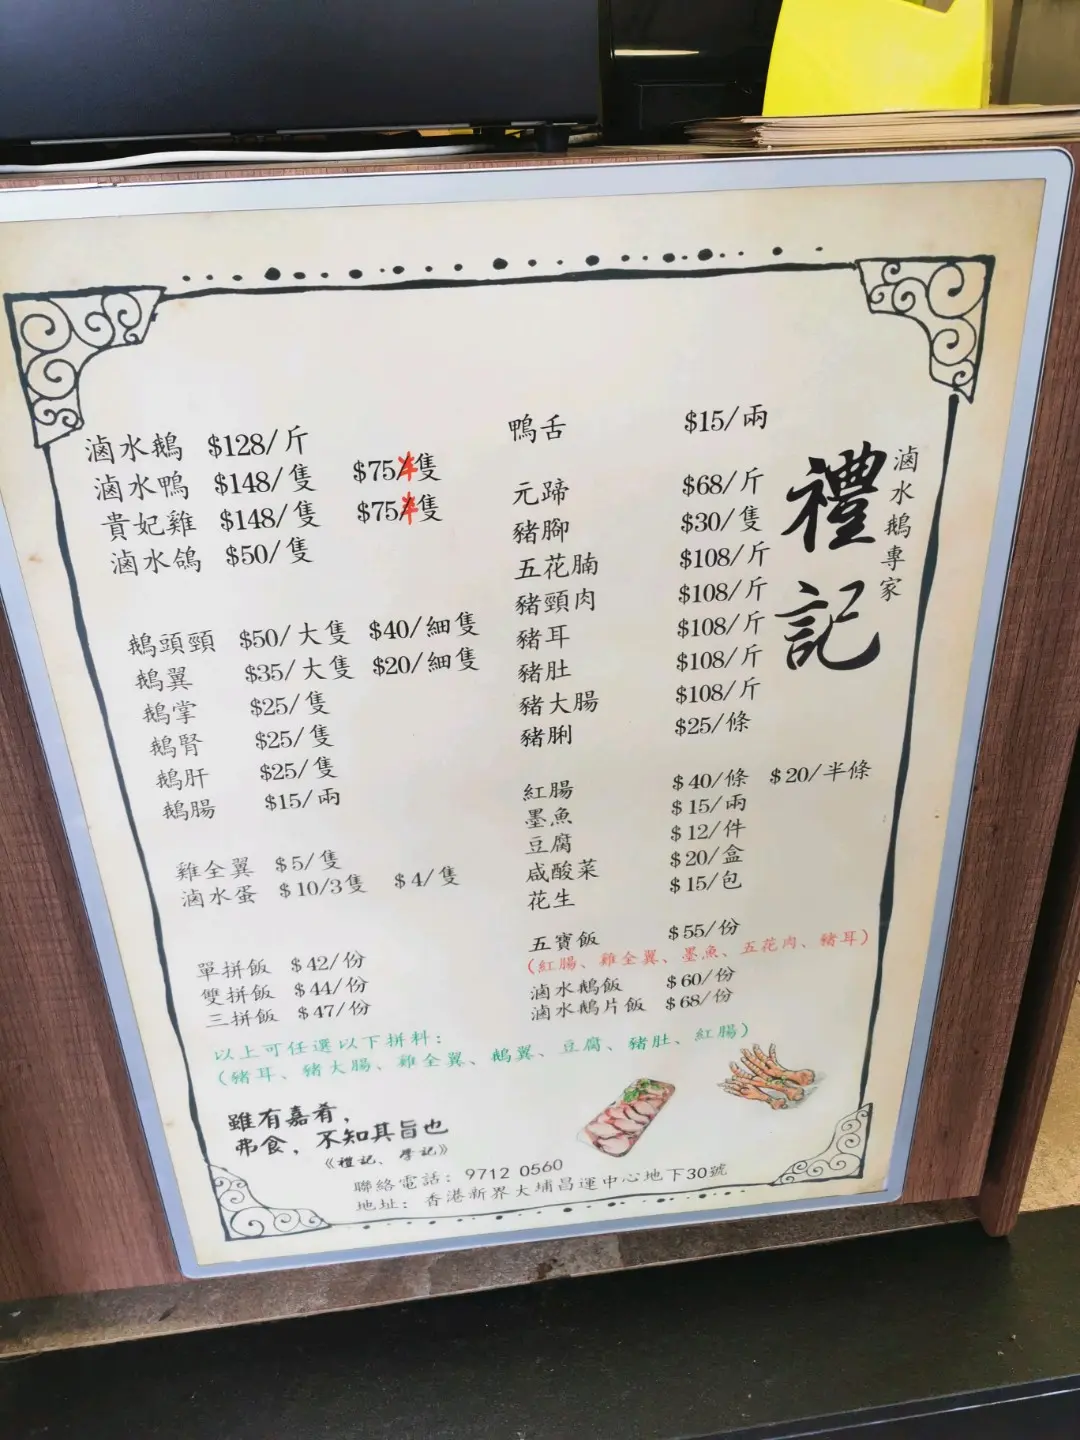 滷水鵝 $128/斤
滷水鴨 $148/隻 $75/半隻
貴妃雞 $148/隻 $75/半隻
滷水鴿 $50/隻
鵝頭頸 $50/大隻 $40/細隻
鵝翼 $35/大隻 $20/細隻
鵝掌 $25/隻
鵝腎 $25/隻
鵝肝 $25/隻
鵝腸 $15/兩
雞全翼 $5/隻
滷水蛋 $10/3隻 $4/隻
單拼飯 $42/份
雙拼飯 $44/份
三拼飯 $47/份
以上可任選以下拼料：
（豬耳、豬大腸、雞全翼、鵝翼、豆腐、豬肚、紅腸）
鴨舌 $15/兩
元蹄 $68/斤
豬腳 $30/隻
五花腩 $108/斤
豬頸肉 $108/斤
豬耳 $108/斤
豬肚 $108/斤
豬大腸 $108/斤
豬脷 $25/條
紅腸 $40/條 $20/半條
墨魚 $15/兩
豆腐 $12/件
咸酸菜 $20/盒
花生 $15/包
五寶飯 $55/份
（紅腸、雞全翼、墨魚、五花肉、豬耳）
滷水鵝飯 $60/份
滷水鵝片飯 $68/份
禮記
滷水鵝專家
雖有嘉肴，
弗食，不知其旨也
《禮記、學記》
聯絡電話：9712 0560
地址：香港新界大埔昌運中心地下30號